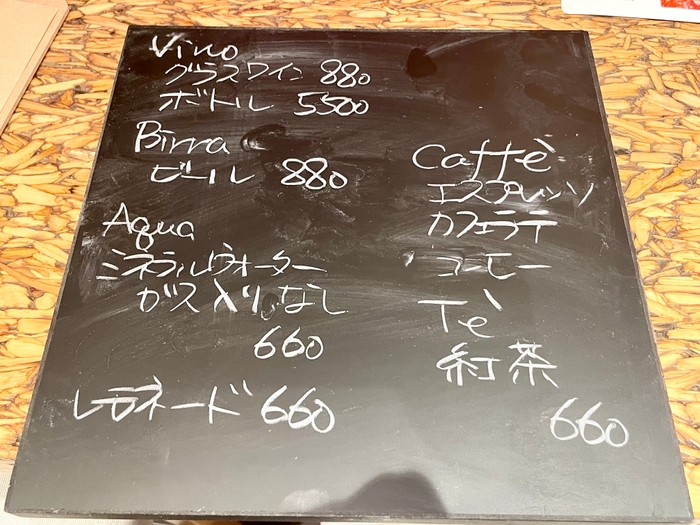 Vino
グラスワイン 880
ボトル 5500
Birra
ビール 880
Aqua
ミネラルウォーター
ガス入り,なし
660
レモネード 660
Caffè
エスプレッソ
カフェラテ
コーヒー
Tè
紅茶
660